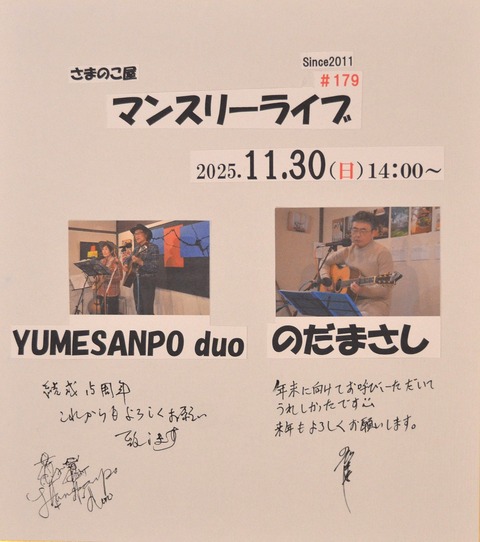 Since2011
さまのこ屋
#179
マンスリーライブ
2025.11.30(日)14:00~
YUMESANPO duo
のだまさし
結成15周年
これからもよろしくお願い
致します
年末に向けてお呼びいただいて
うれしかったです
来年もよろしくお願いします。